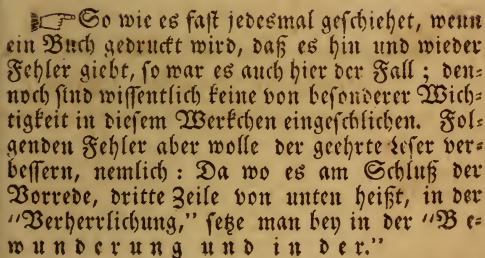 ☞So wie es fast jedesmal geschiehet, wenn
ein Buch gedruckt wird, daß es hin und wieder
Fehler giebt, so war es auch hier der Fall ; den-
noch sind wissentlich keine von besonderer Wich-
tigkeit in diesem Werkchen eingeschlichen. Fol-
genden Fehler aber wolle der geehrte Leser ver-
bessern, nemlich : Da wo es am Schluß der
Vorrede, dritte Zeile von unten heißt, in der
"Verherrlichung," setze man bey in der "B e-
w u n d e r u n g  u n d  i n  d e r."